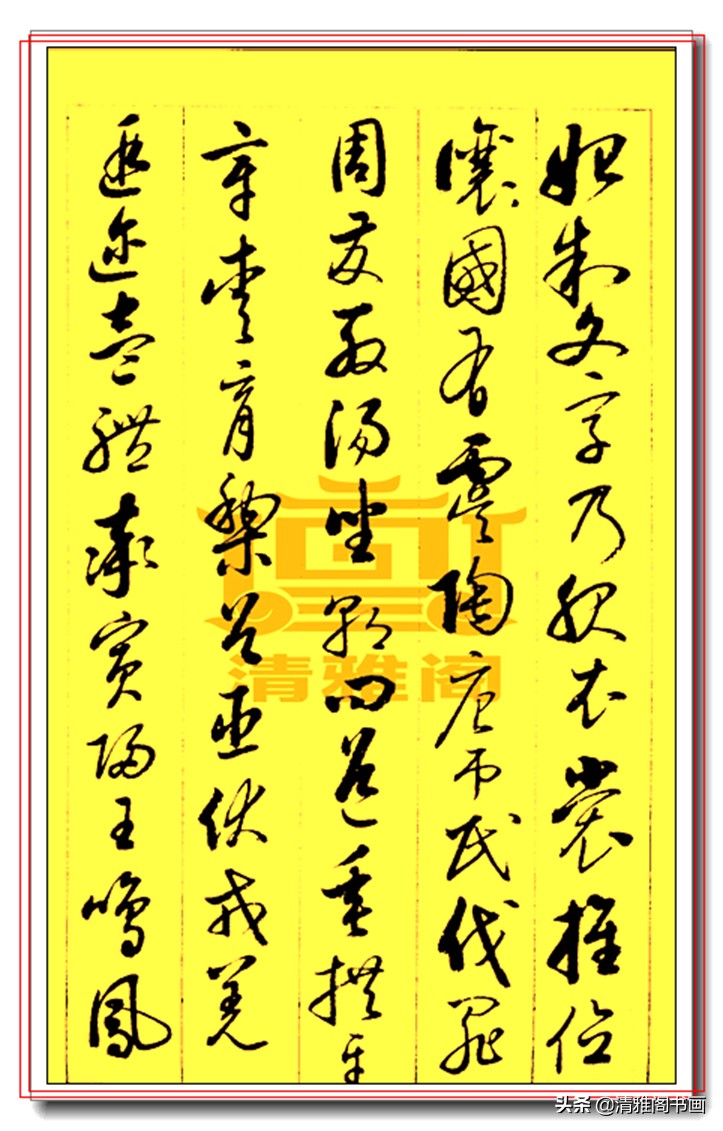 始制文字乃服衣裳推位
讓國有虞陶唐弔民伐罪
周發殷湯坐朝問道垂拱平
章愛育黎首臣伏戎羌
遐邇壹體率賓歸王鳴鳳
清雅阁
头条 @清雅阁书画